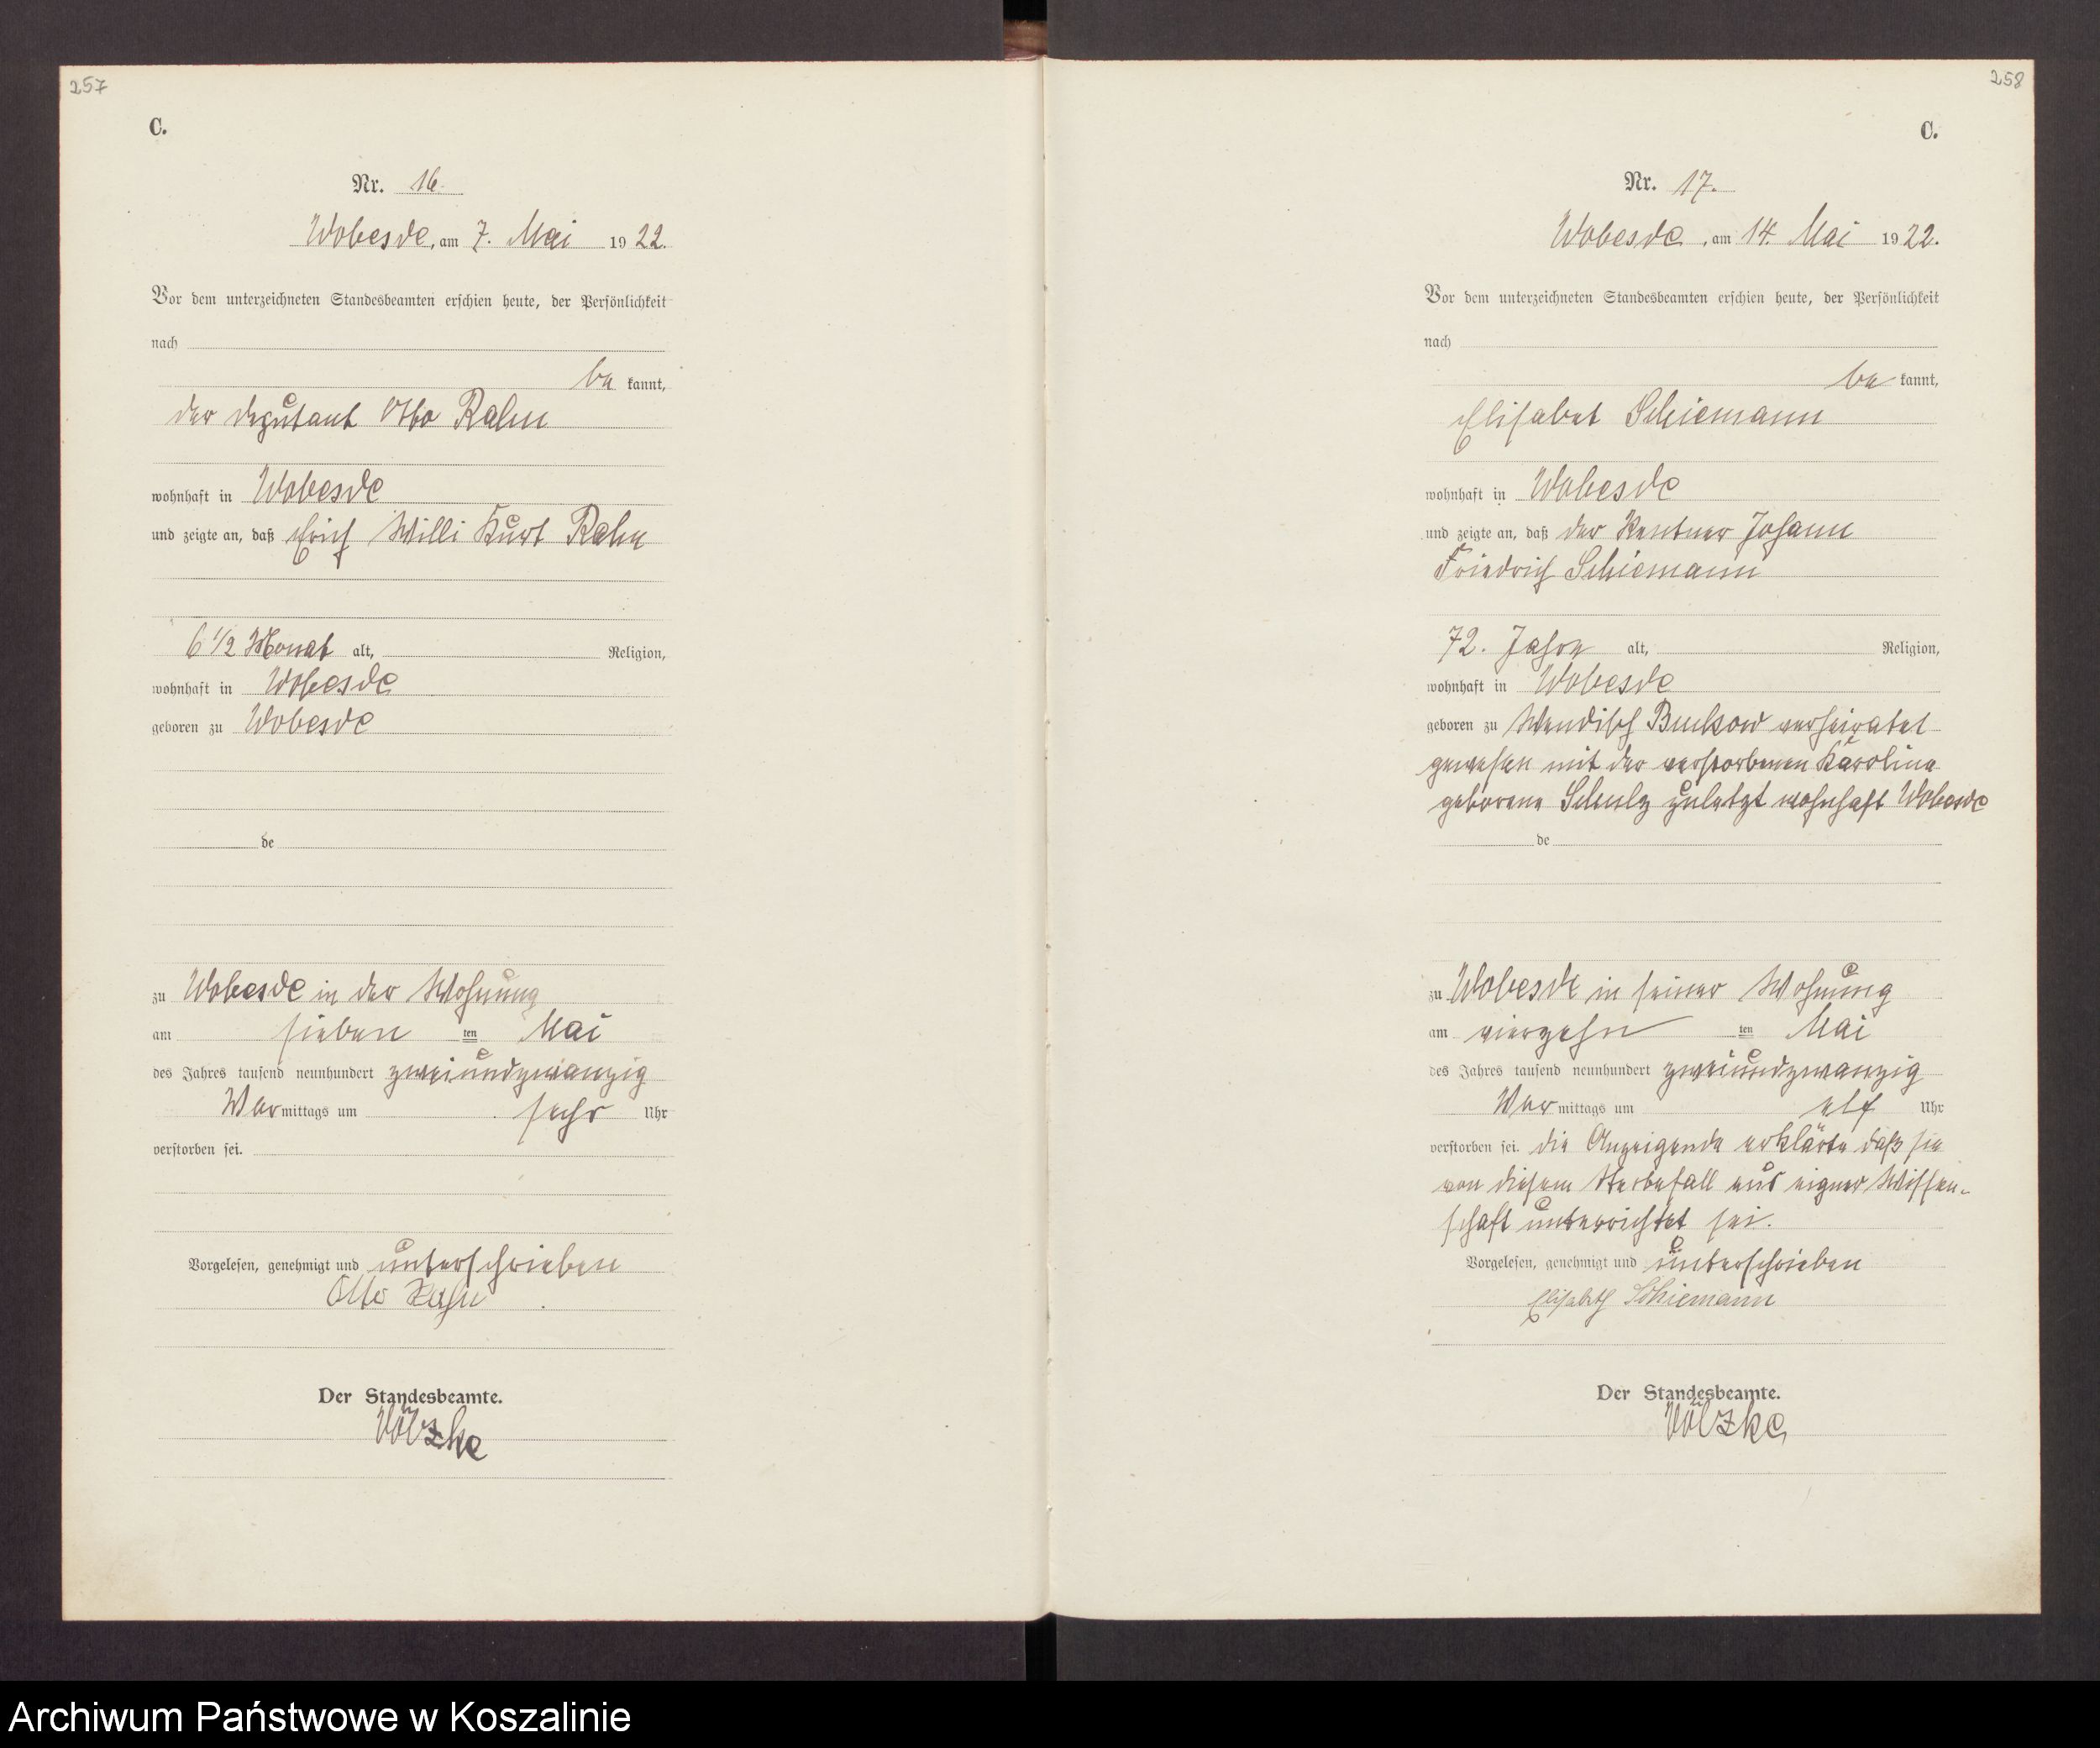 257
C.
Nr. 16
Wobesde, am 7. Mai 1922.
Vor dem unterzeichneten Standesbeamten erschien heute, der Persönlichkeit
nach
be kannt,
der Deputant Otto Rahn
wohnhaft in Wobesde
und zeigte an, daß Erich Willi Kurt Rahn
6 1/2 Monat alt, Religion,
wohnhaft in Wobesde
geboren zu Wobesde
de
zu Wobesde in der Wohnung
am sieben ten Mai
des Jahres tausend neunhundert zweiundzwanzig
Vormittags um sechs Uhr
verstorben sei.
Vorgelesen, genehmigt und unterschrieben
Otto Rahn
Der Standesbeamte.
Völzke
258
C.
Nr. 17.
Wobesde, am 14. Mai 1922.
Vor dem unterzeichneten Standesbeamten erschien heute, der Persönlichkeit
nach
be kannt,
Elisabet Schiemann
wohnhaft in Wobesde
und zeigte an, daß der Rentner Johann
Friedrich Schiemann
72. Jahre alt, Religion,
wohnhaft in Wobesde
geboren zu Wendisch Buckow verheiratet
gewesen mit der verstorbenen Karoline
geborene Schulz zuletzt wohnhaft Wobesde
de
zu Wobesde in seiner Wohnung
am vierzehn ten Mai
des Jahres tausend neunhundert zweiundzwanzig
Vormittags um elf Uhr
verstorben sei. die Anzeigende erklärte daß sie
von diesem Sterbefall aus eigner Wissen-
schaft unterrichtet sei.
Vorgelesen, genehmigt und unterschrieben
Elisabeth Schiemann
Der Standesbeamte.
Völzke
Archiwum Państwowe w Koszalinie